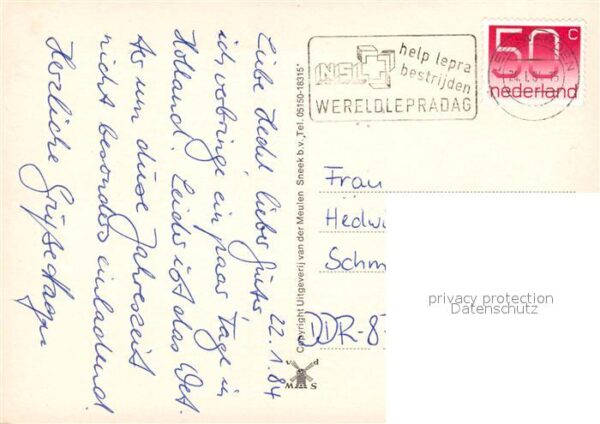 22.1.84
Liebe Hedel lieber Günter
ich verbringe ein paar Tage in
Holland. Leider ist das Wet.
As um diese Jahreszeit
nicht besonders einladend.
Herzliche Grüße Hagen
Copyright Uitgeverij van der Meulen Sneek b.v., Tel. 05150-18315*
v d
M S
help lepra
bestrijden
NSL
WERELDLEPRADAG
50 c
nederland
Frau
Hedwi
Schm
DDR-8
privacy protection
Datenschutz